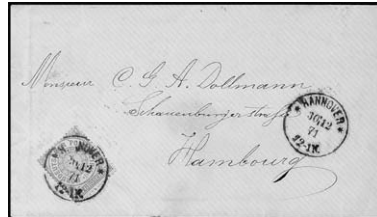 Monsieur C. G. A. Dollmann
Schauenburgerstrasse
Hambourg
* HANNOVER *
30 12
71
12-1N.
HANNOVER *
30 12
71
12-1N.